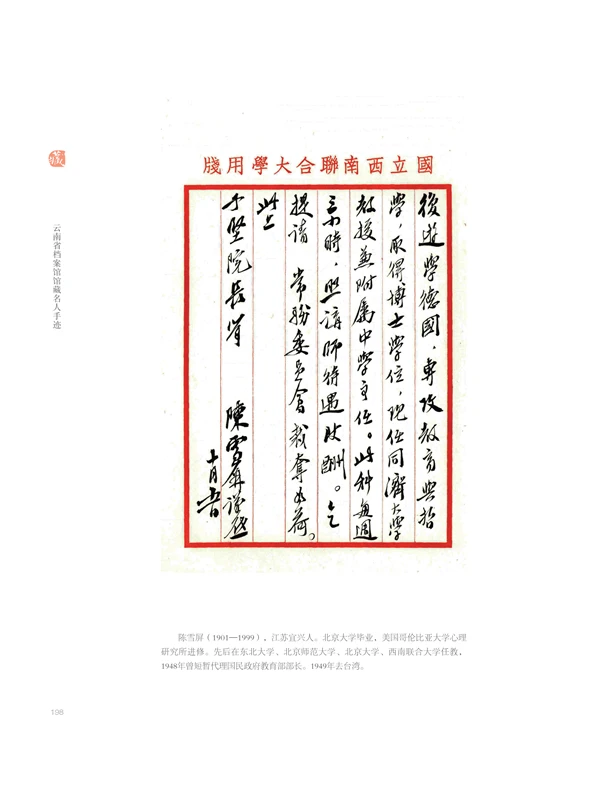 藏
云南省档案馆馆藏名人手迹
國立西南聯合大學用牋
後遊學德國，專攻教育與哲
學，取得博士學位，現任同濟大學
教授兼附屬中學主任。此科每週
三小時，照講師待遇致酬。乞
提請 常務委員會裁奪為荷。
此上
子堅院長 陳雪屏謹啟
十月五日
陈雪屏（1901—1999），江苏宜兴人。北京大学毕业，美国哥伦比亚大学心理
研究所进修。先后在东北大学、北京师范大学、北京大学、西南联合大学任教，
1948年曾短暂代理国民政府教育部部长。1949年去台湾。
198